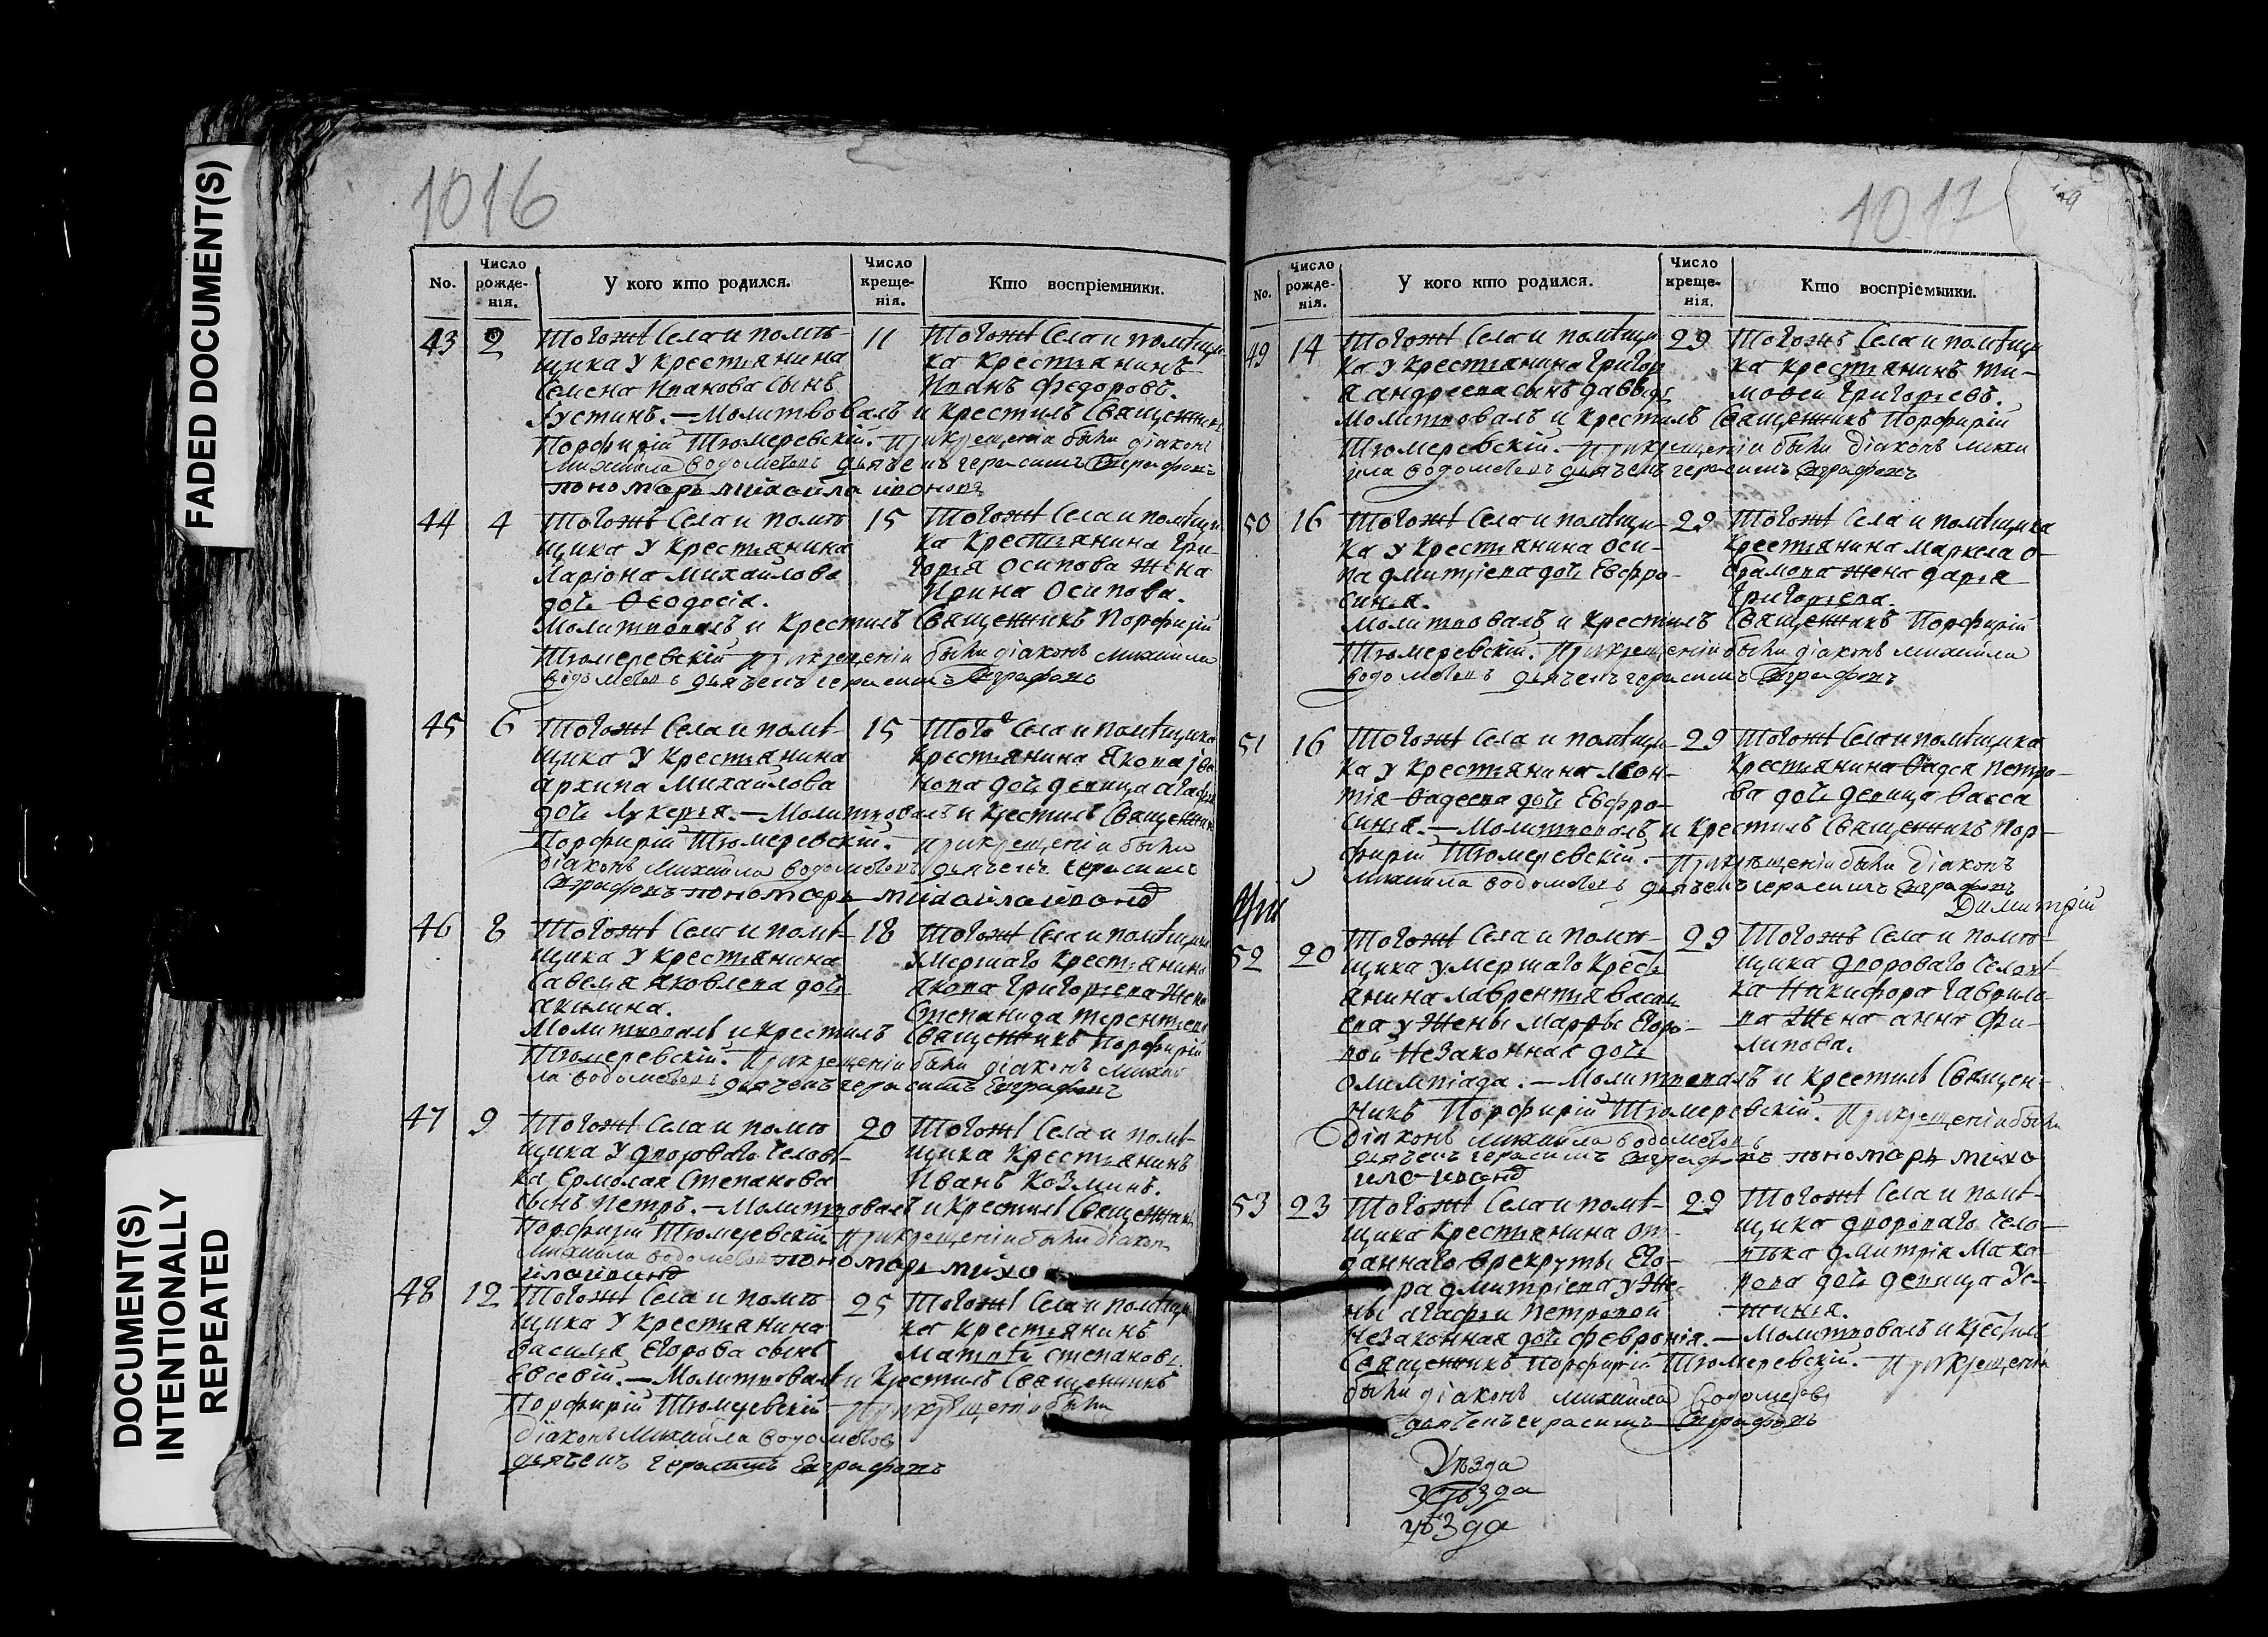 FADED DOCUMENT(S)
DOCUMENT(S)
INTENTIONALLY
REPEATED
1016
No.
Число рожденія.
У кого кто родился.
Число крещенія.
Кто воспріемники.
43
2
Тогожъ Села и помѣ-
щика У крестьянина
Семена Иванова сынъ
Іустинъ. — Молитвовалъ и крестилъ Священникъ
Порфирій Тюмеревскій. При крещеніи были діаконъ
Михайла Водометовъ дьячекъ Герасимъ Евграфовъ
пономарь михайла ивановъ
11
Тогожъ Села и помѣщи-
ка крестьянинъ
Иванъ Федоровъ.
44
4
Тогожъ Села и помѣ-
щика У крестьянина
Ларіона Михайлова
дочь Ѳеодосія.
Молитвовалъ и крестилъ Священникъ Порфирій
Тюмеревскій При крещеніи были діаконъ Михайла
Водометовъ дьячекъ Герасимъ Евграфовъ
15
Тогожъ Села и помѣщи-
ка крестьянина Гри-
горья Осипова жена
Ирина Осипова.
45
6
Тогожъ Села и помѣ-
щика У крестьянина
Архипа Михайлова
дочь Лукерья. — Молитвовалъ и крестилъ Священникъ
Порфирій Тюмеревскій. При крещеніи были
діаконъ Михайла Водометовъ дьячекъ Герасимъ
Евграфовъ пономарь михайла ивановъ
15
Того Села и помѣщика
крестьянина Якова
дочь девица
46
8
Тогожъ Села и помѣ-
щика У крестьянина
Савелья Яковлева дочь
Акилина.
Молитвовалъ и крестилъ Священникъ Порфирій
Тюмеревскій. При крещеніи были діаконъ Михай
ла Водометовъ дьячекъ Герасимъ Евграфовъ
18
Тогожъ Села и помѣщика
умершаго крестьянина
Акова Григорьева жена
Степанида Терентьева
47
9
Тогожъ Села и помѣ
щика У двороваго челов-
ка Ермолая Степанова
сынъ Петръ. — Молитвовалъ и крестилъ Священникъ
Порфирій Тюмеревскій При крещеніи были діаконъ
Михайла Водометовъ пономарь михо
ила ивановъ
20
Тогожъ Села и помѣ-
щика крестьянинъ
Иванъ Козминъ.
48
12
Тогожъ Села и помѣ-
щика У крестьянина
Василья Егорова сынъ
Евсевій. — Молитвовалъ и крестилъ Священникъ
Порфирій Тюмеревскій При крещеніи были
діаконъ Михайла Водометовъ
дьячекъ Герасимъ Евграфовъ
25
Тогожъ Села и помѣщи
ка крестьянинъ
Матвѣй Степановъ.
1017
No.
Число рожденія.
У кого кто родился.
Число крещенія.
Кто воспріемники.
49
14
Тогожъ Села и помѣщи
ка У крестьянина Григор
я Андреева сынъ Давыдъ
Молитвовалъ и крестилъ Священникъ Порфирій
Тюмеревскій. При крещеніи были діаконъ Михаи
ила Водометовъ дьячекъ Герасимъ Евграфовъ
29
Тогожъ Села и помѣщи
ка крестьянинъ Ти-
мофей Григорьевъ.
50
16
Тогожъ Села и помѣщи-
ка У крестьянина Оси-
па Дмитріева дочь Евфро-
синья.
Молитвовалъ и крестилъ Священникъ Порфирій
Тюмеревскій. При крещеніи были діаконъ Михайла
Водометовъ дьячекъ Герасимъ Евграфовъ
29
Тогожъ Села и помѣщика
крестьянина Маркела А-
брамова жена Дарья
Григорьева.
51
16
Тогожъ Села и помѣщи-
ка У крестьянина Леон-
тія Ѳадеева дочь Евфро-
синья. — Молитвовалъ и крестилъ Священникъ Пор-
фирій Тюмеревскій. При крещеніи были діаконъ
Михайла Водометовъ дьячекъ Герасимъ Евграфовъ
29
Тогожъ Села и помѣщика
крестьянина Ѳадея Петро-
ва дочь девица Васса
Димитрій
52
20
Тогожъ Села и помѣ-
щика умершаго Кресть
янина Лаврентья Васил
ева у жены Марфы Егоро-
вой незаконная дочь
Олимпіада. — Молитвовалъ и крестилъ Священ-
никъ Порфирій Тюмеревскій. При крещеніи были
діаконъ Михайла Водометовъ
дьячекъ Герасимъ Евграфовъ пономарь михо
ила ивановъ
29
Тогожъ Села и помѣ-
щика двороваго Челов
ка Никифора Гаврило-
ва жена Анна Фи-
липова.
53
23
Тогожъ Села и помѣ-
щика крестьянина от-
даннаго в рекруты Его-
ра Дмитріева у же-
ны Агафьи Петровой
незаконная дочь Февронія. — Молитвовалъ и крестилъ
Священникъ Порфирій Тюмеревскій. При крещеніи
были діаконъ Михайла Водометовъ
дьячекъ Герасимъ Евграфовъ
29
Тогожъ Села и помѣ-
щика двороваго чело-
вѣка Дмитрія Мака-
рова дочь девица Ус-
тинья.
Уѣзда
Уѣзда
уѣзда